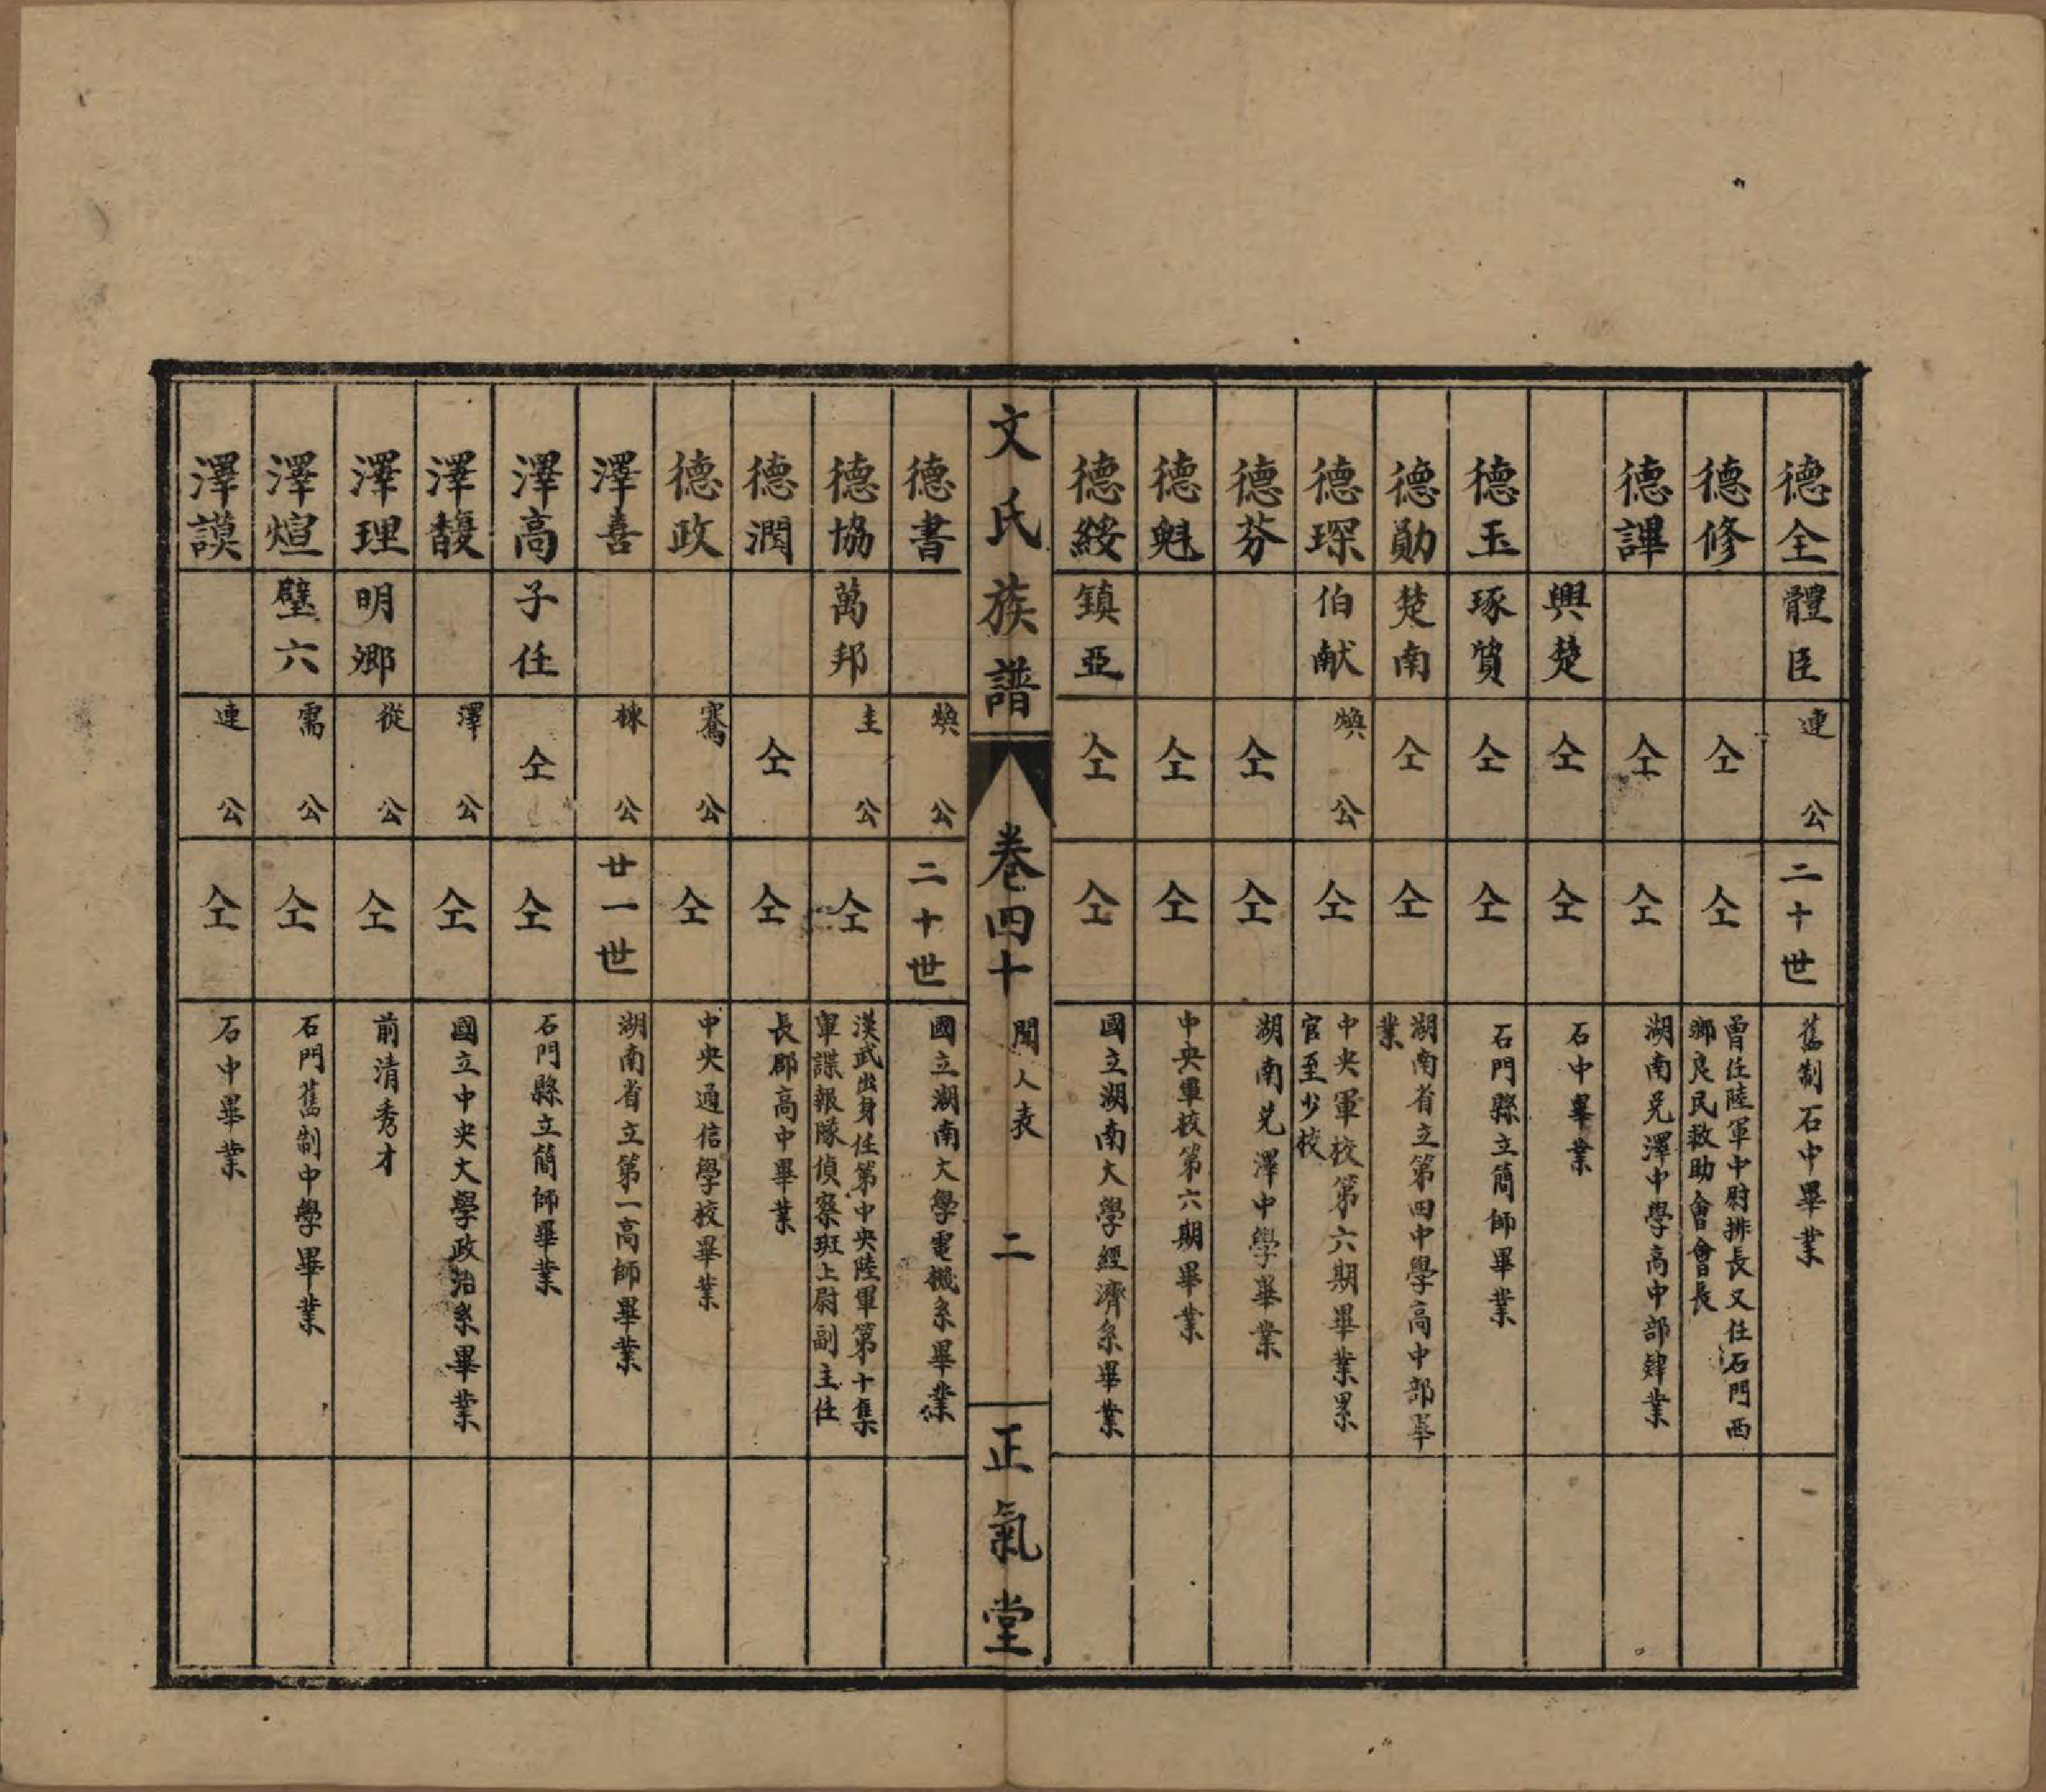 德全 體臣 連公 二十世 舊制石中畢業
德修 仝 仝 曾任陸軍中尉排長又任石門西
鄉良民救助會會長
德譁 仝 仝 湖南兑澤中學高中部肄業
興楚 仝 仝 石中畢業
德玉 琢質 仝 仝 石門縣立簡師畢業
德勛 楚南 仝 仝 湖南省立第四中學高中部畢
業
德琛 伯献 煥公 仝 中央軍校第六期畢業累
官至少校
德芬 仝 仝 湖南兑澤中學畢業
德魁 仝 仝 中央軍校第六期畢業
德綏 鎮亞 仝 仝 國立湖南大學經濟系畢業
文氏族譜 卷四十 聞人表 二 正氣堂
德書 煥公 二十世 國立湖南大學電機系畢業
德協 萬邦 圭公 仝 漢武出身任第中央陸軍第十集
軍諜報隊偵察班上尉副主任
德潤 仝 仝 長郡高中畢業
德政 騫公 仝 中央通信學校畢業
澤善 棟公 廿一世 湖南省立第一高師畢業
澤高 子任 仝 仝 石門縣立簡師畢業
澤馥 澤公 仝 國立中央大學政治系畢業
澤理 明鄉 從公 仝 前清秀才
澤煊 璧六 需公 仝 石門舊制中學畢業
澤謨 連公 仝 石中畢業